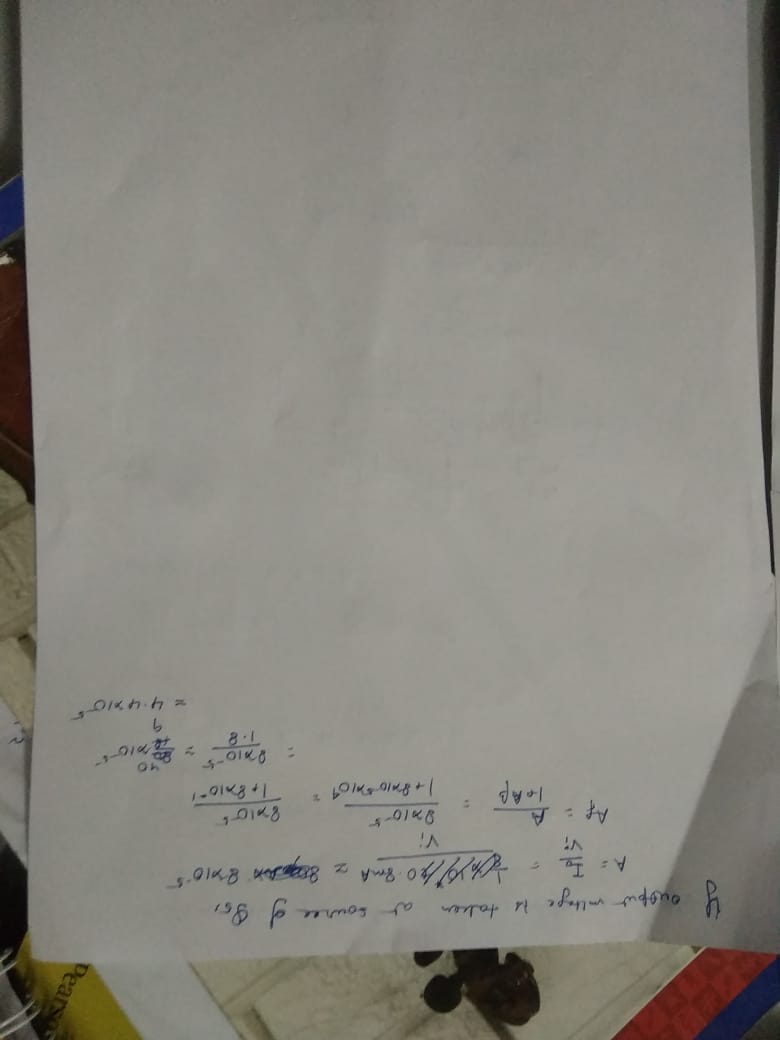 Pearson
If output voltage is taken at source of Q5,
A = Io/Vi = 0.8mA/Vi = 8×10^-5
Af = A/(1+Aβ) = 8×10^-5/(1+8×10^-5×10^4) = 8×10^-5/(1+8×10^-1)
= 8×10^-5/1.8 = 40/9 ×10^-5
= 4.4×10^-5